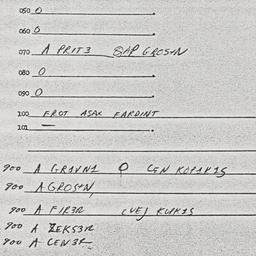 050 0
060 0
070 A PRIT3 SAP GROS4N
080 0
090 0
100 FROT ASAX FARDINT
101 —
900 A GRAVN1 O CEN KOPAK1S
900 A GROS4N
900 A FIR3R CVEJ KUPK1S
900 A ZEKS3R
900 A CEN3R